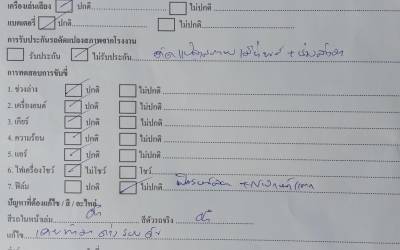 เครื่องเล่นเสียง ปกติ ไม่ปกติ
แบตเตอรี่ ปกติ ไม่ปกติ
การรับประกันรถดัดแปลงสภาพจากโรงงาน
รับประกัน ไม่รับประกัน
การทดสอบการขับขี่
1. ช่วงล่าง ปกติ ไม่ปกติ
2. เครื่องยนต์ ปกติ ไม่ปกติ
3. เกียร์ ปกติ ไม่ปกติ
4. ความร้อน ปกติ ไม่ปกติ
5. แอร์ ปกติ ไม่ปกติ
6. ไฟเครื่องโชว์ ไม่โชว์ โชว์
7. ฟิล์ม ปกติ ไม่ปกติ
ปัญหาที่ต้องแก้ไข / สี / อะไหล่
สีรถในหน้าเล่ม ดำ สีตัวรถจริง ดำ
แก้ไข